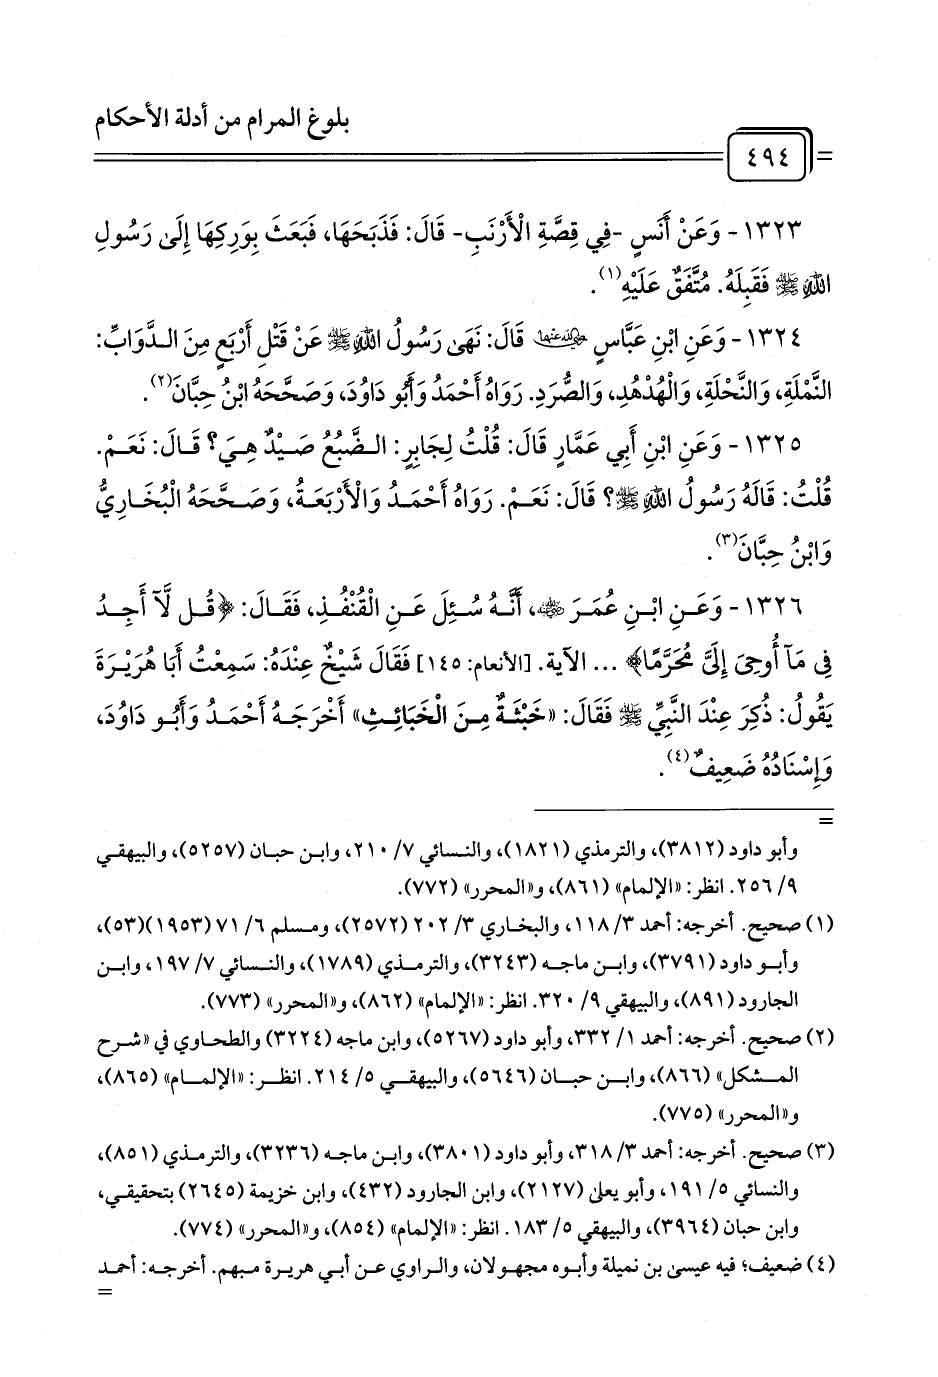 بلوغ المرام من أدلة الأحكام
٤٩٤
١٣٢٣- وَعَنْ أَنَسٍ -فِي قِصَّةِ الْأَرْنَبِ- قَالَ: فَذَبَحَهَا، فَبَعَثَ بِوَرِكِهَا إِلَىٰ رَسُولِ
اللهِ ﷺ فَقَبِلَهُ. مُتَّفَقٌ عَلَيْهِ(١).
١٣٢٤- وَعَنِ ابْنِ عَبَّاسٍ رضي الله عنهما قَالَ: نَهَىٰ رَسُولُ اللهِ ﷺ عَنْ قَتْلِ أَرْبَعٍ مِنَ الدَّوَابِّ:
النَّمْلَةِ، وَالنَّحْلَةِ، وَالْهُدْهُدِ، وَالصُّرَدِ. رَوَاهُ أَحْمَدُ وَأَبُو دَاوُدَ، وَصَحَّحَهُ ابْنُ حِبَّانَ(٢).
١٣٢٥- وَعَنِ ابْنِ أَبِي عَمَّارٍ قَالَ: قُلْتُ لِجَابِرٍ: الضَّبُعُ صَيْدٌ هِيَ؟ قَالَ: نَعَمْ.
قُلْتُ: قَالَهُ رَسُولُ اللهِ ﷺ؟ قَالَ: نَعَمْ. رَوَاهُ أَحْمَدُ وَالْأَرْبَعَةُ، وَصَحَّحَهُ الْبُخَارِيُّ
وَابْنُ حِبَّانَ(٣).
١٣٢٦- وَعَنِ ابْنِ عُمَرَ رضي الله عنهما، أَنَّهُ سُئِلَ عَنِ الْقُنْفُذِ، فَقَالَ: ﴿قُل لَّآ أَجِدُ
فِى مَآ أُوحِىَ إِلَىَّ مُحَرَّمًا﴾ ... الآية. [الأنعام: ١٤٥] فَقَالَ شَيْخٌ عِنْدَهُ: سَمِعْتُ أَبَا هُرَيْرَةَ
يَقُولُ: ذُكِرَ عِنْدَ النَّبِيِّ ﷺ فَقَالَ: «خَبْثَةٌ مِنَ الْخَبَائِثِ» أَخْرَجَهُ أَحْمَدُ وَأَبُو دَاوُدَ،
وَإِسْنَادُهُ ضَعِيفٌ(٤).
=
وأبو داود (٣٨١٢)، والترمذي (١٨٢١)، والنسائي ٧/ ٢١٠، وابن حبان (٥٢٥٧)، والبيهقي
٩/ ٢٥٦. انظر: «الإلمام» (٨٦١)، و«المحرر» (٧٧٢).
(١) صحيح. أخرجه: أحمد ٣/ ١١٨، والبخاري ٣/ ٢٠٢ (٢٥٧٢)، ومسلم ٦/ ٧١ (١٩٥٣)(٥٣)،
وأبو داود (٣٧٩١)، وابن ماجه (٣٢٤٣)، والترمذي (١٧٨٩)، والنسائي ٧/ ١٩٧، وابن
الجارود (٨٩١)، والبيهقي ٩/ ٣٢٠. انظر: «الإلمام» (٨٦٢)، و«المحرر» (٧٧٣).
(٢) صحيح. أخرجه: أحمد ١/ ٣٣٢، وأبو داود (٥٢٦٧)، وابن ماجه (٣٢٢٤) والطحاوي في «شرح
المشكل» (٨٦٦)، وابن حبان (٥٦٤٦)، والبيهقي ٥/ ٢١٤. انظر: «الإلمام» (٨٦٥)،
و«المحرر» (٧٧٥).
(٣) صحيح. أخرجه: أحمد ٣/ ٣١٨، وأبو داود (٣٨٠١)، وابن ماجه (٣٢٣٦)، والترمذي (٨٥١)،
والنسائي ٥/ ١٩١، وأبو يعلى (٢١٢٧)، وابن الجارود (٤٣٢)، وابن خزيمة (٢٦٤٥) بتحقيقي،
وابن حبان (٣٩٦٤)، والبيهقي ٥/ ١٨٣. انظر: «الإلمام» (٨٥٤)، و«المحرر» (٧٧٤).
(٤) ضعيف؛ فيه عيسى بن نميلة وأبوه مجهولان، والراوي عن أبي هريرة مبهم. أخرجه: أحمد
=